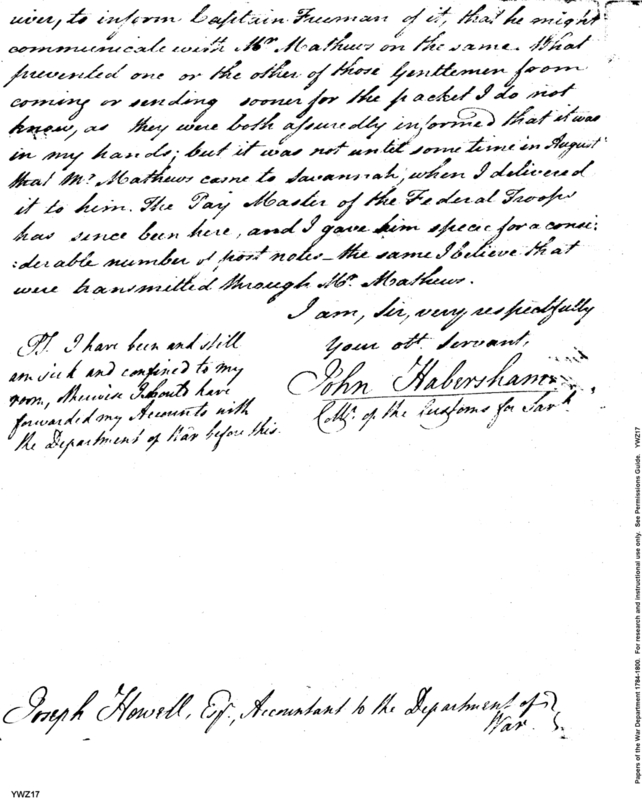 river, to inform Captain Freeman of it, that he might
communicate with Mr. Mathews on the same. What
prevented one or the other of those Gentlemen from
coming or sending sooner for the packet I do not
know, as they were both assuredly informed that it was
in my hands; but it was not until some time in August
that Mr. Mathews came to Savannah, when I delivered
it to him. The Pay Master of the Federal Troops
has since been here, and I gave him specie for a consi:
:derable number of post notes – the same I believe that
were transmitted through Mr. Mathews.
I am, Sir, very respectfully
Your obt. servant,
John Habersham
Collr. of the Customs for Savh.
PS. I have been and still
am sick and confined to my
room, otherwise I should have
forwarded my Accounts with
the Department of War before this.
Joseph Howell, Esqr., Accountant to the Department of
War.
Papers of the War Department 1784-1800. For research and instructional use only. See Permissions Guide. YWZ17
YWZ17